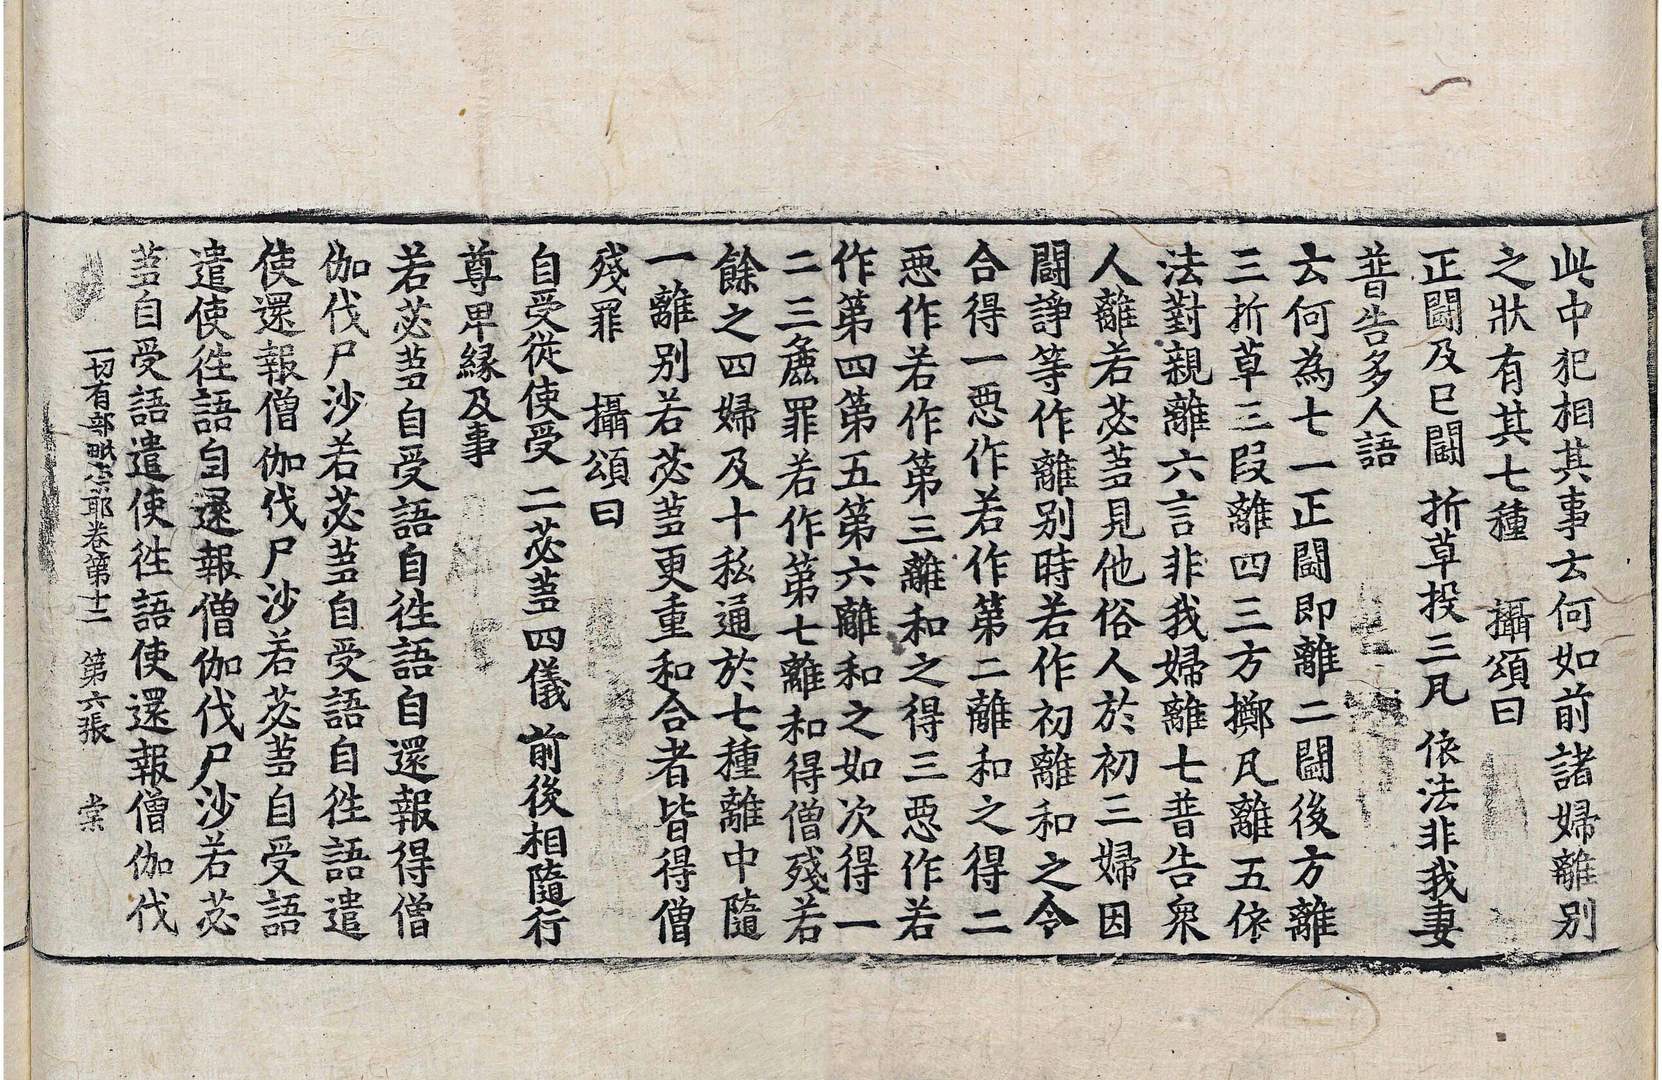 此中犯相其事云何如前諸婦離別
之狀有其七種　攝頌曰
正鬪及已鬪　折草投三瓦　依法非我妻
普告多人語
云何為七一正鬪即離二鬪後方離
三折草三段離四三方擲瓦離五依
法對親離六言非我婦離七普告衆
人離若苾蒭見他俗人於初三婦因
鬪諍等作離別時若作初離和之令
合得一惡作若作第二離和之得二
惡作若作第三離和之得三惡作若
作第四第五第六離和之如次得一
二三麁罪若作第七離和得僧殘若
餘之四婦及十私通於七種離中隨
一離別若苾蒭更重和合者皆得僧
殘罪　攝頌曰
自受從使受　二苾蒭四儀　前後相隨行
尊卑緣及事
若苾蒭自受語自往語自還報得僧
伽伐尸沙若苾蒭自受語自往語遣
使還報僧伽伐尸沙若苾蒭自受語
遣使往語自還報僧伽伐尸沙若苾
蒭自受語遣使往語使還報僧伽伐
一切有部毗奈耶卷第十二　第六張　棠